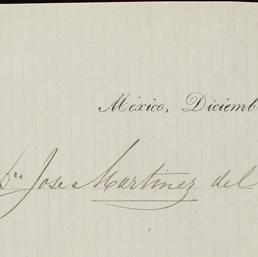 México, Diciemb
Dn. Jose Martinez del